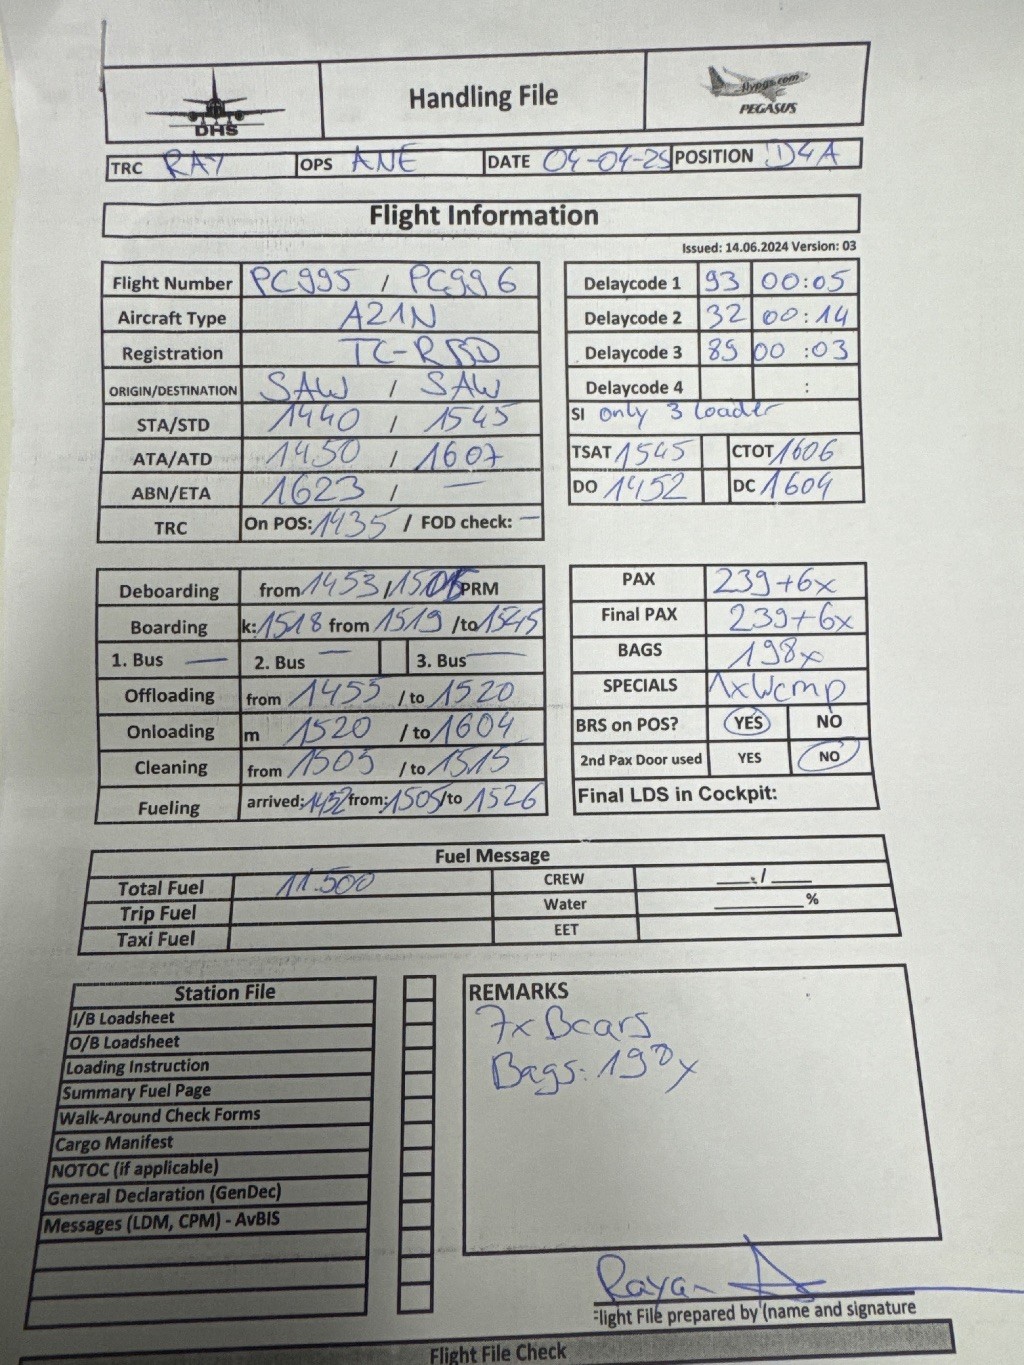 DHS
Handling File
flypgs.com
PEGASUS
TRC RAY OPS ANE DATE 04-04-25 POSITION D4A
Flight Information
Issued: 14.06.2024 Version: 03
Flight Number PC995 / PC996
Aircraft Type A21N
Registration TC-RBD
ORIGIN/DESTINATION SAW / SAW
STA/STD 1440 / 1545
ATA/ATD 1450 / 1607
ABN/ETA 1623 / —
TRC On POS: 1435 / FOD check: —
Delaycode 1 93 00:05
Delaycode 2 32 00:14
Delaycode 3 89 00:03
Delaycode 4 :
SI only 3 loader
TSAT 1545 CTOT 1606
DO 1452 DC 1604
Deboarding from 1453 / PRM
Boarding k: 1518 from 1519 /to 1545
1. Bus — 2. Bus — 3. Bus —
Offloading from 1455 /to 1520
Onloading m 1520 /to 1604
Cleaning from 1505 /to 1515
Fueling arrived: 1452 from: 1505 /to 1526
PAX 239+6x
Final PAX 239+6x
BAGS 198x
SPECIALS 1xWcmp
BRS on POS? YES NO
2nd Pax Door used YES NO
Final LDS in Cockpit:
Fuel Message
Total Fuel 11.500 CREW ___./___
Trip Fuel Water ______%
Taxi Fuel EET
Station File
I/B Loadsheet
O/B Loadsheet
Loading Instruction
Summary Fuel Page
Walk-Around Check Forms
Cargo Manifest
NOTOC (if applicable)
General Declaration (GenDec)
Messages (LDM, CPM) - AvBIS
REMARKS
7x Bcars
Bags: 198x
Rayan
Flight File prepared by (name and signature
Flight File Check